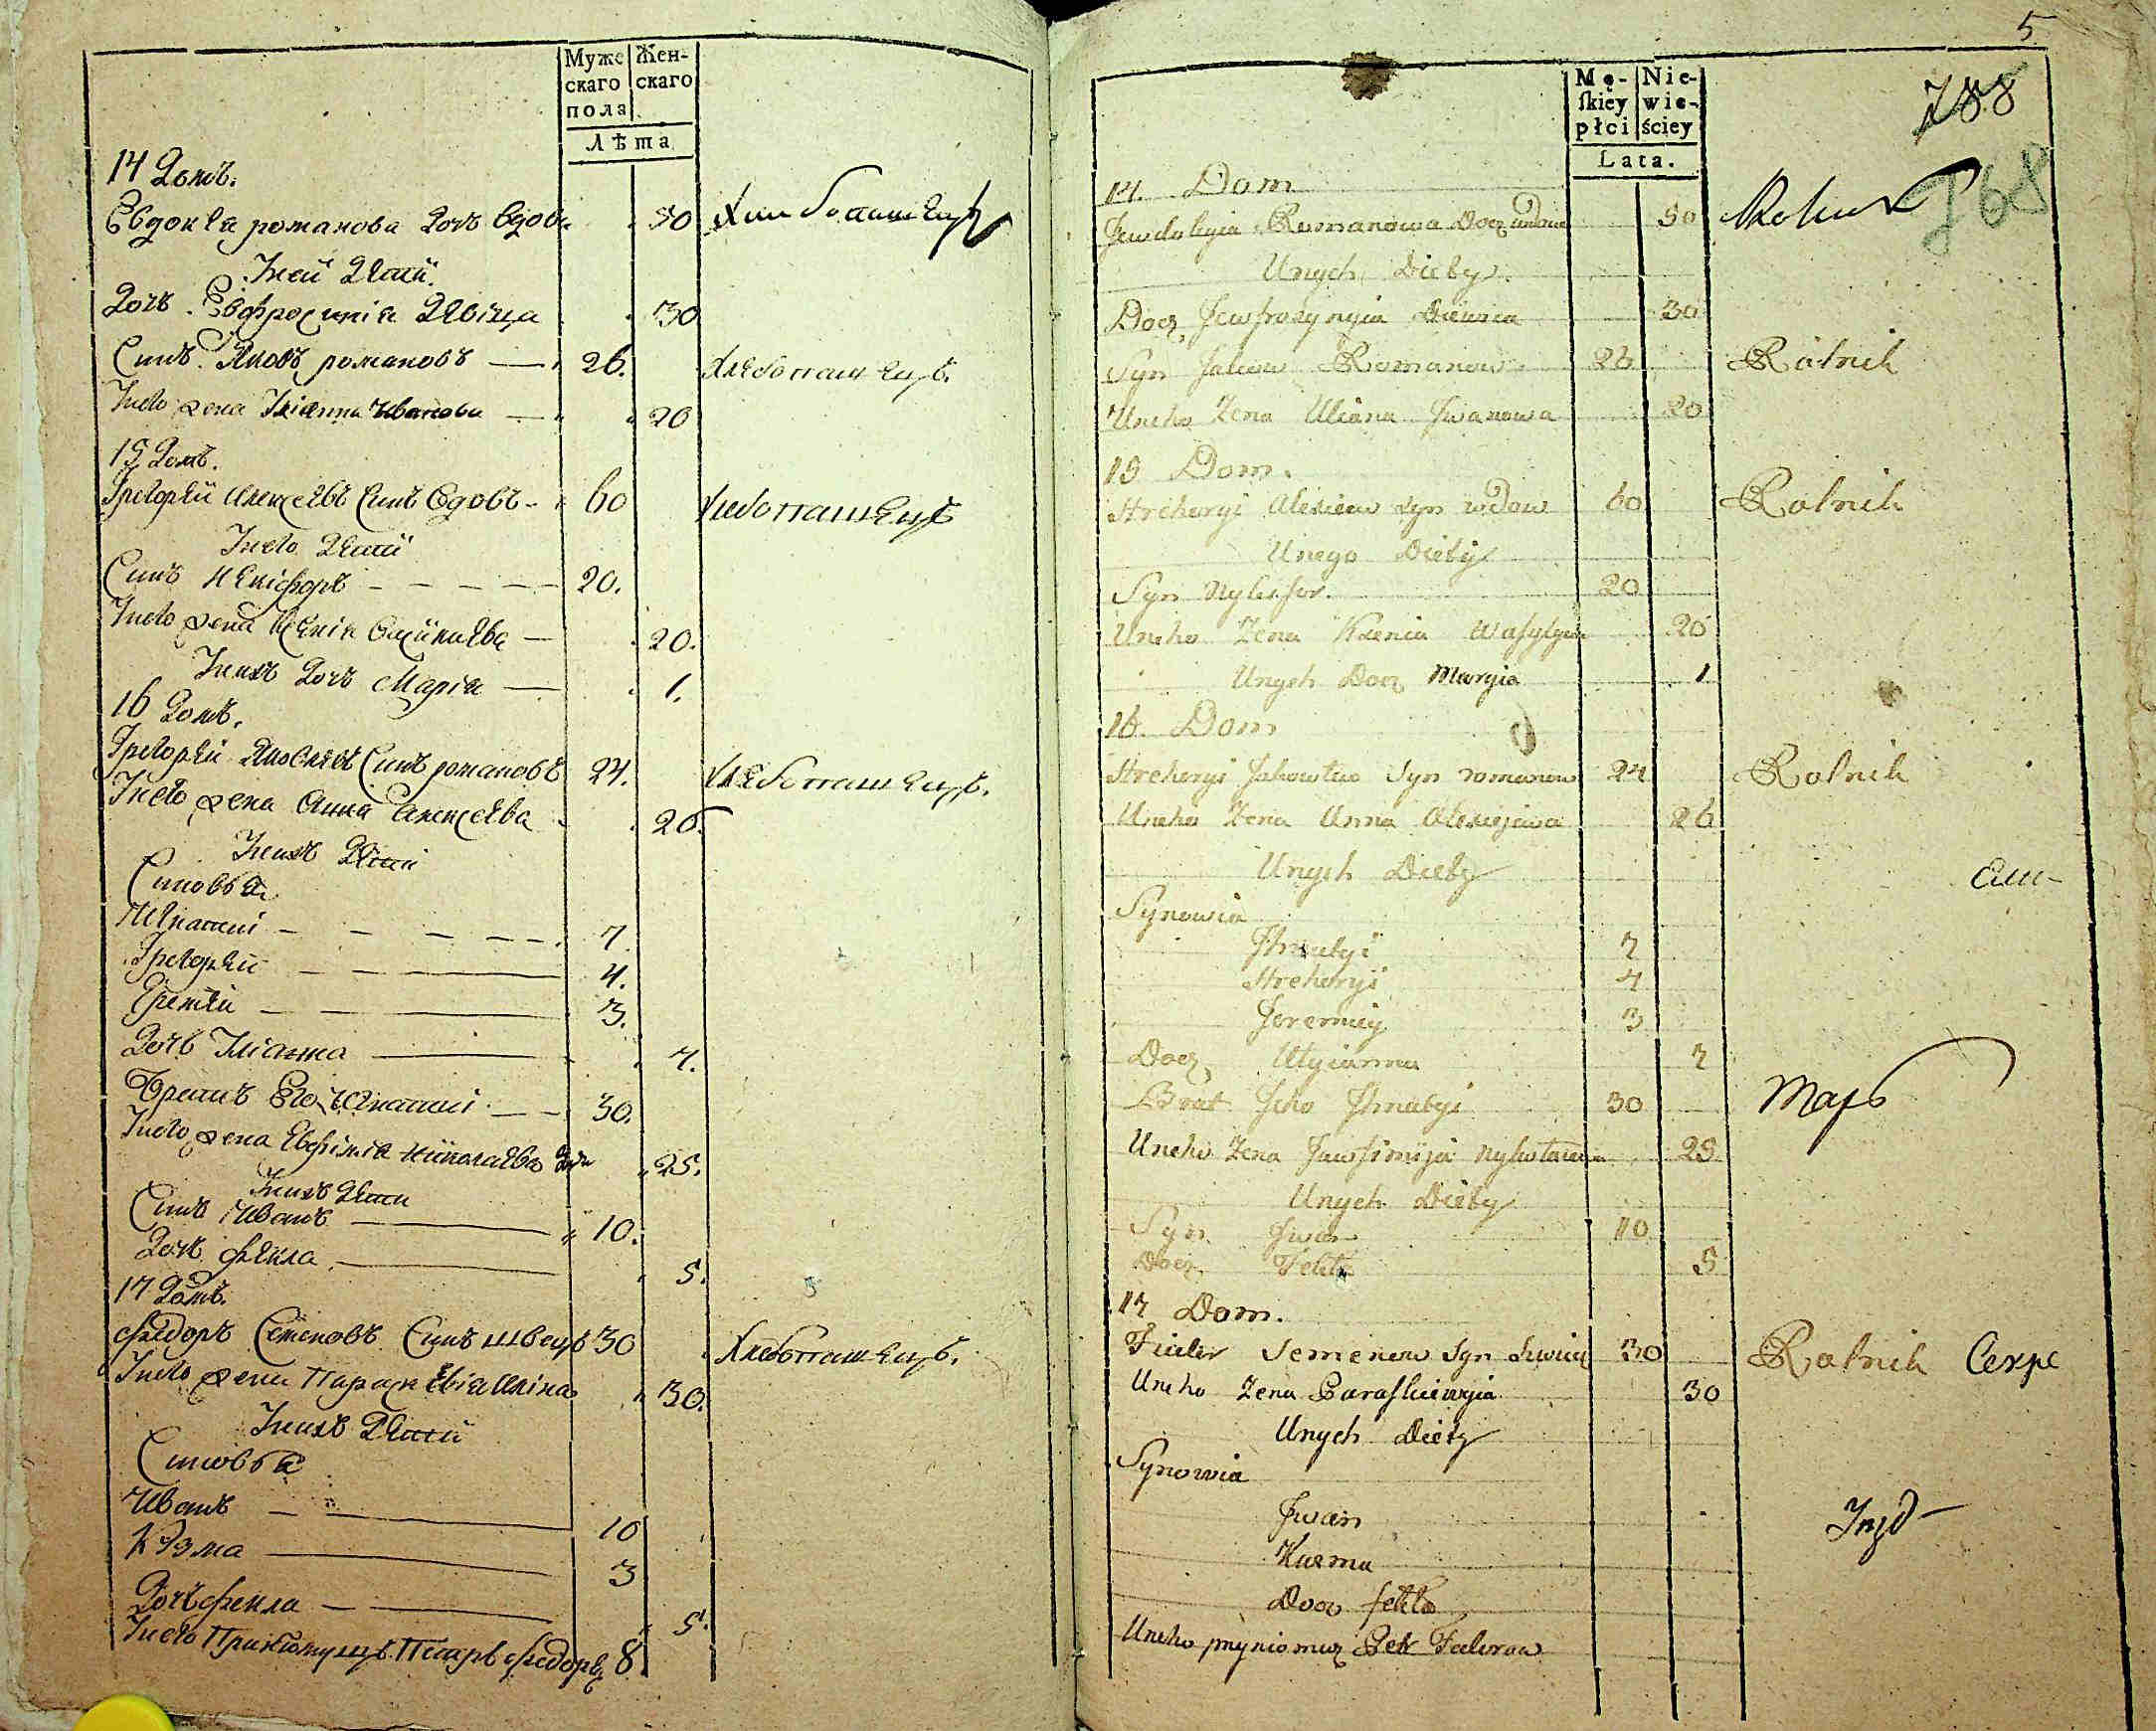 Муже
скаго
пола
Жен-
скаго
Лѣта
14 Домъ.
Евдокія романова Дочь Вдова 50
Унеи Дѣти
Дочь Евфросинія Дѣвица 30
Синъ Яковъ романовъ — 26. хлебопашецъ.
Унего жена Уліанна Иванова — 20
15 Домъ.
Григорій Алексѣевъ Синъ Вдовъ 60 хлебопашецъ
Унего Дѣти
Синъ Никіфоръ — — — — 20.
Унего жена Ксенія — 20.
Унихъ Дочь Марія — 1.
16 Домъ.
Григорѣй Яковлевъ Синъ романовъ 24. хлебопашецъ.
Унего жена Анна Алексѣева 26.
Унихъ Дѣти
Синовья
Игнатій — — — — — 7.
Григорѣй — — 4.
Еремѣй — — 3.
Дочь Уліанна — 7.
Братъ Его Игнатій — — 30.
Унего жена Евфімія Николаева 25.
Унихъ Дѣти
Синъ Иванъ — 10.
Дочь Фекла — 5.
17 Домъ.
Федоръ Семеновъ Синъ швецъ 30 хлебопашецъ.
Унего жена Параскевія 30.
Унихъ Дѣти
Синовья
Иванъ — 10
Кузма — 3
Дочь Фекла — 5.
Унего Пріиомишъ Петръ Федоровъ 8
5
Mę-
skiey
płci
Nie-
wie-
ściey
Lata.
788
768
14. Dom
Jewdokyia Romanowa Docz wdowa 50
Unych Diety
Docz Jewfrozynyia Diewica 30
Syn Jakow Romanow 26 Rolnik
Uneho Zena Uliana Jwanowa 20
15 Dom.
Hrehoryi Alexiew syn wdow 60 Rolnik
Unego Diety
Syn Nykifor 20
Uneho Zena Ksenia 20
Unych Docz Maryia 1
16. Dom
Hrehoryi Jakowlew Syn romanow 24 Rolnik
Uneho Zena Anna Alexiejewa 26
Unych Diety
Synowia
Jhnatyi 7
Hrehoryi 4
Jeremiy 3
Docz Ulyianna 7
Brat Jeho Jhnatyi 30
Uneho Zena Jewfimija 25
Unych Diety
Syn Jwan 10
Docz Fekla 5
17 Dom.
Fiedor Semenow Syn 30 Rolnik
Uneho Zena Paraskiewyia 30
Unych Diety
Synowia
Jwan
Kuzma
Docz fekla
Uneho Petr Fedorow